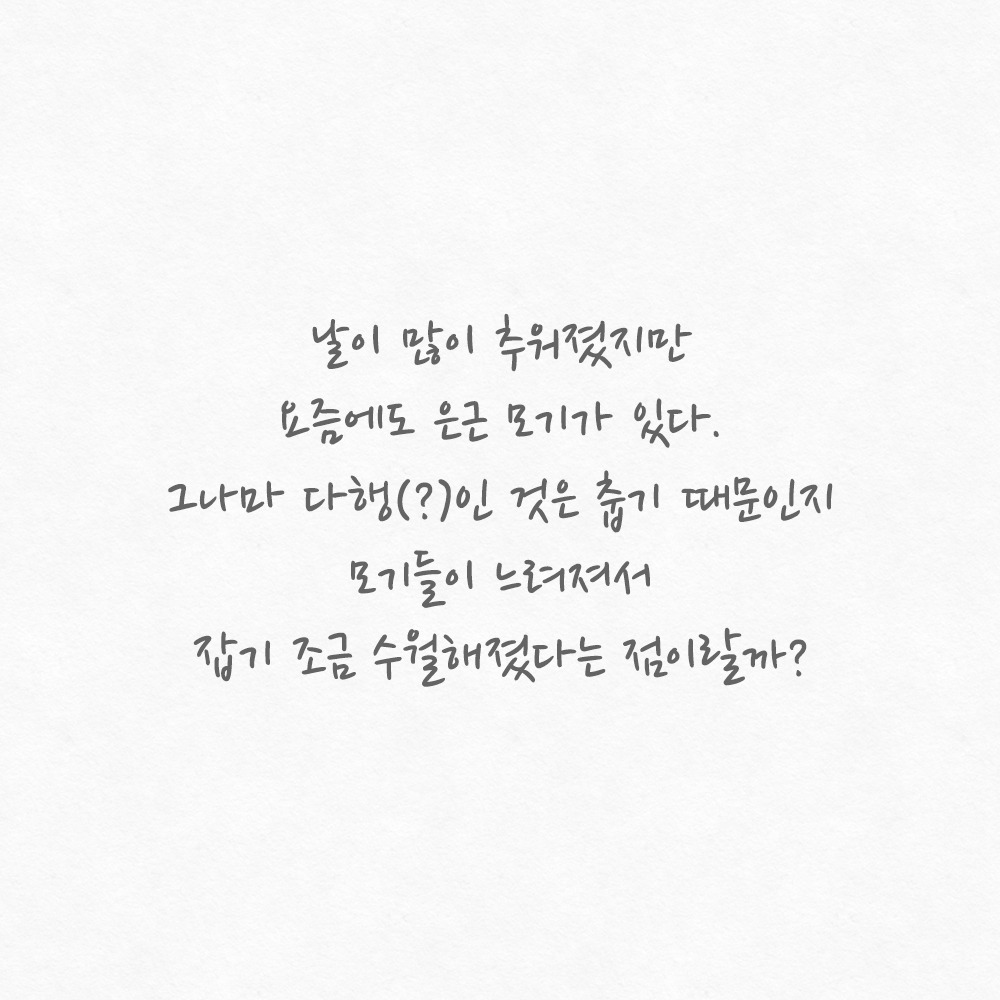 날이 많이 추워졌지만
요즘에도 은근 모기가 있다.
그나마 다행(?)인 것은 춥기 때문인지
모기들이 느려져서
잡기 조금 수월해졌다는 점이랄까?